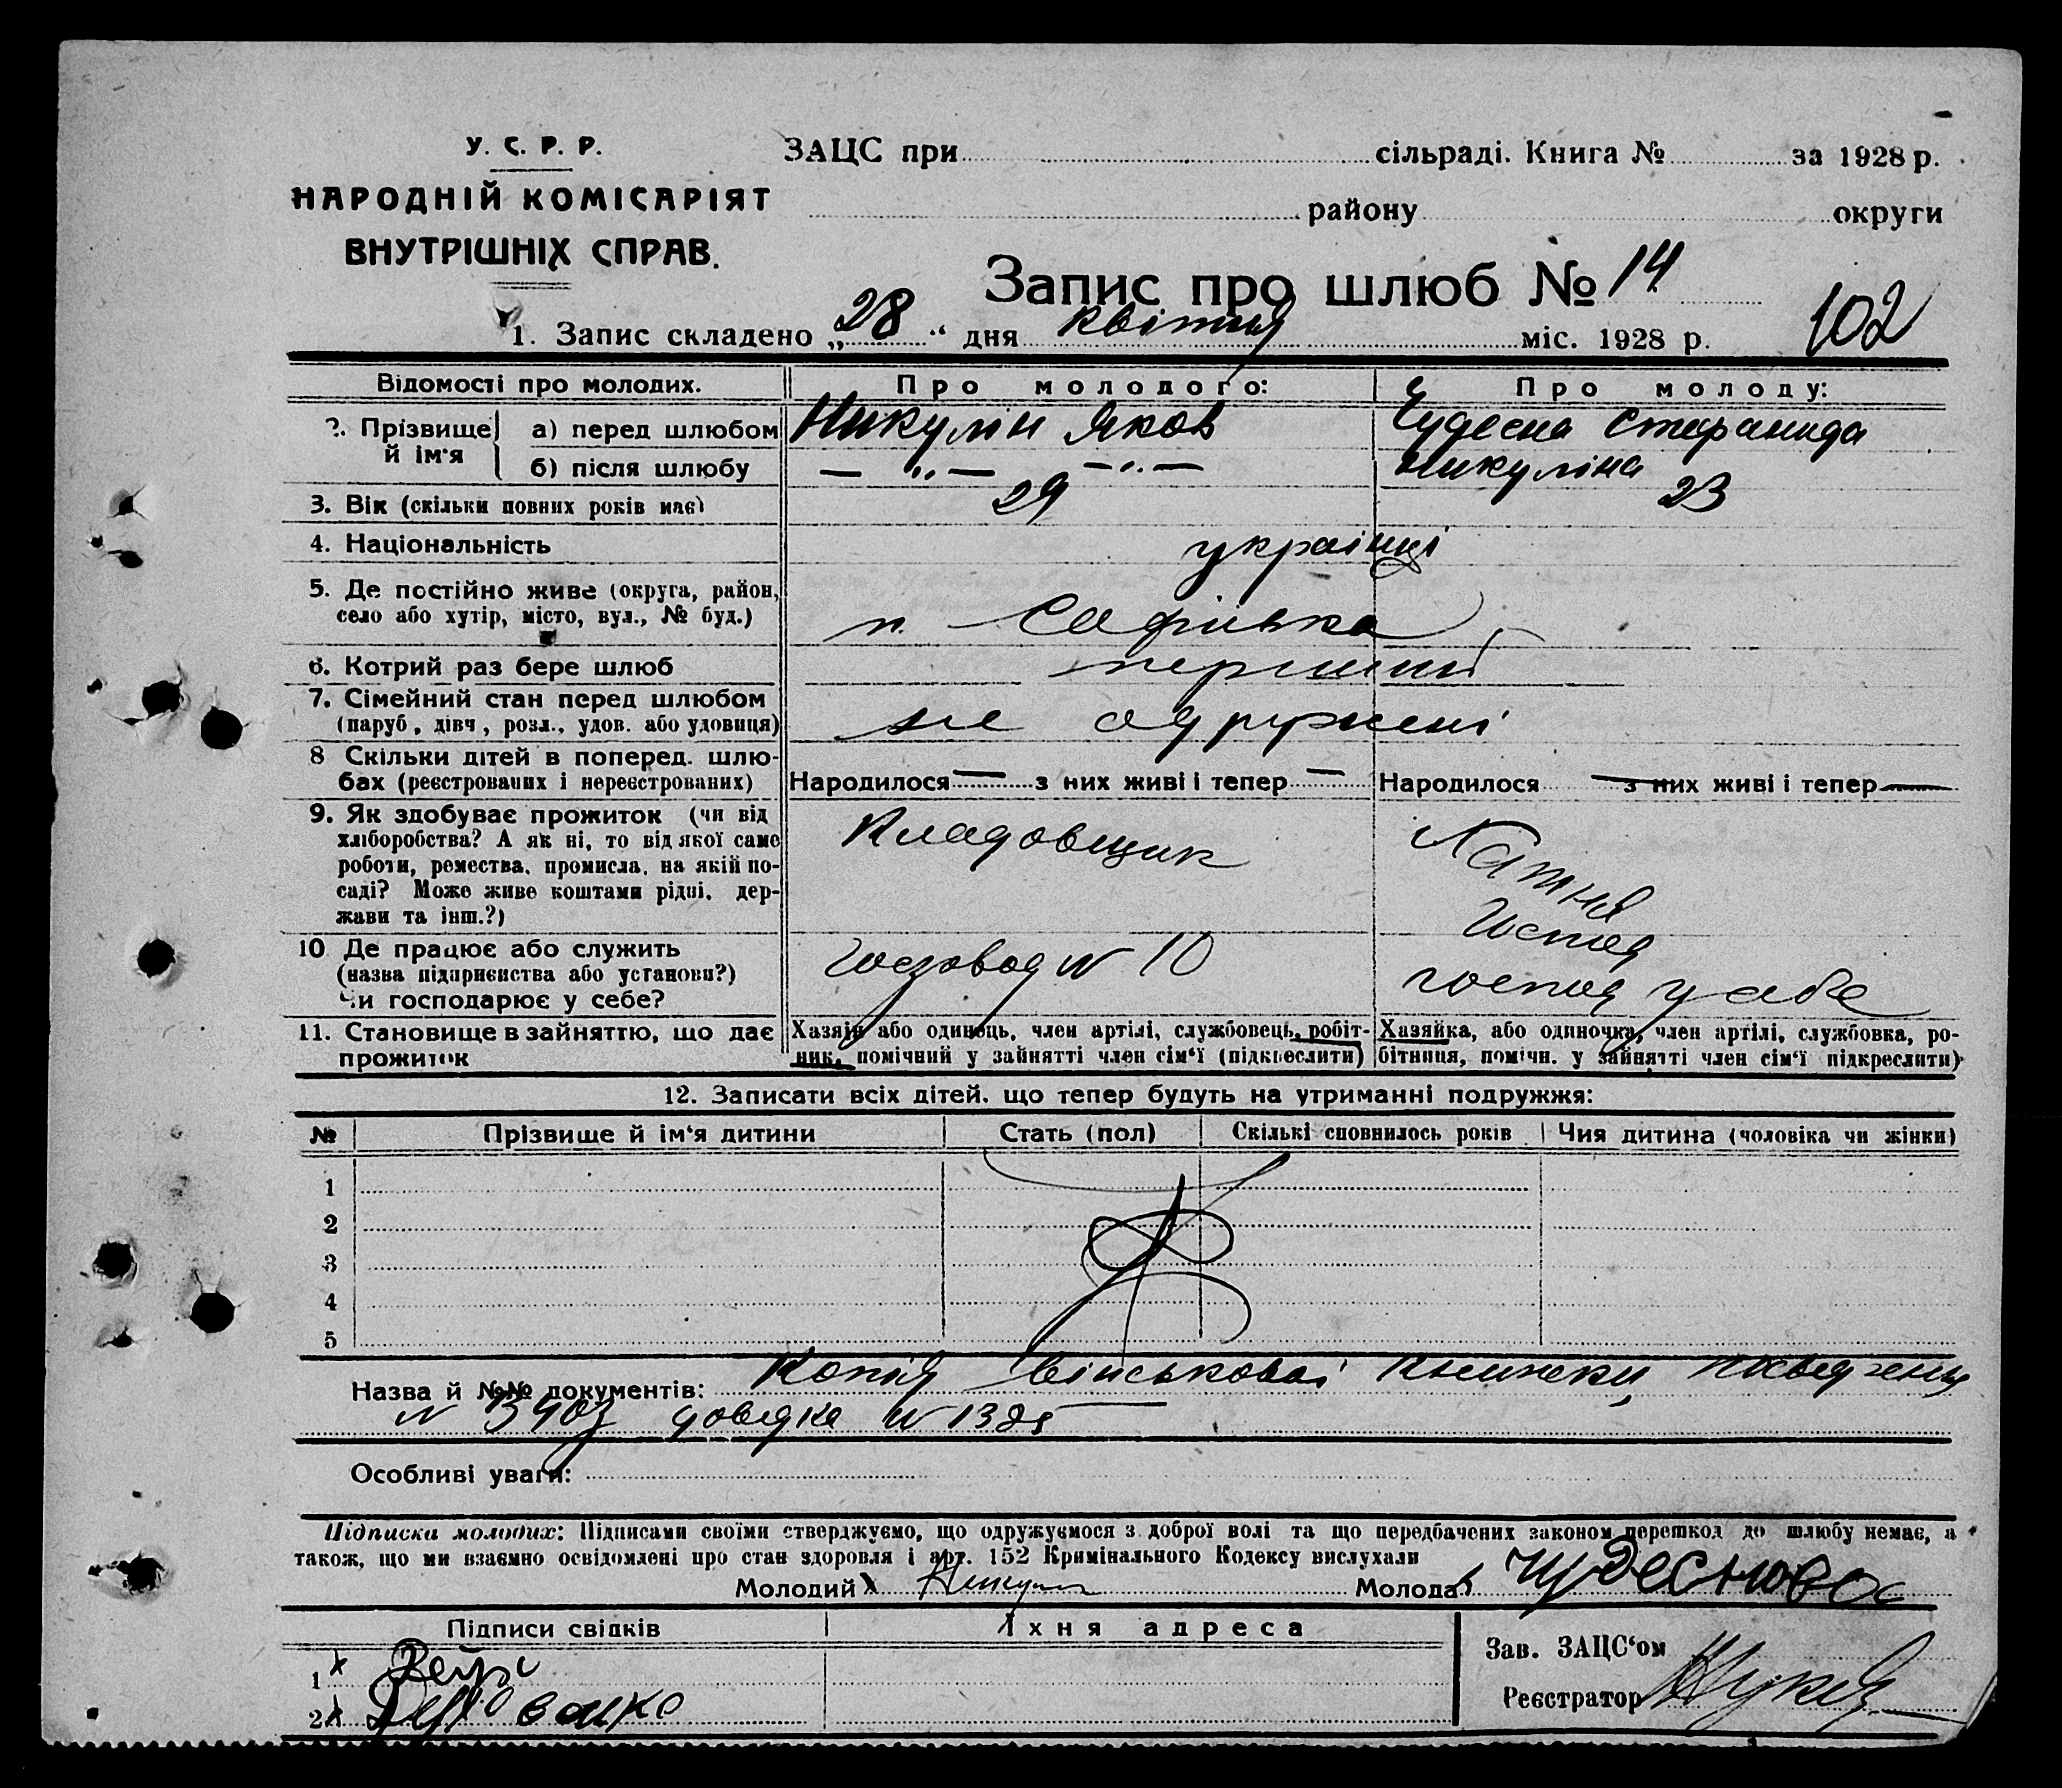 У. С. Р. Р.
НАРОДНІЙ КОМІСАРІЯТ
ВНУТРІШНІХ СПРАВ.
ЗАЦС при сільраді. Книга № за 1928 р.
району округи
Запис про шлюб № 14
102
1. Запис складено „28“ дня квітня міс. 1928 р.
Відомості про молодих. Про молодого: Про молоду:
2. Прізвище й ім'я а) перед шлюбом Никулін Яков Чудесна Стефанида
б) після шлюбу — „ — — „ — Никуліна
3. Вік (скільки повних років має) 29 23
4. Національність українці
5. Де постійно живе (округа, район,
село або хутір, місто, вул., № буд.)
6. Котрий раз бере шлюб перший
7. Сімейний стан перед шлюбом
(паруб., дівч., розл., удов. або удовиця) не одружені
8 Скільки дітей в поперед. шлю-
бах (реєстрованих і нереєстрованих) Народилося — з них живі і тепер — Народилося — з них живі і тепер —
9. Як здобуває прожиток (чи від
хліборобства? А як ні, то від якої саме
роботи, ремества, промисла, на якій по-
саді? Може живе коштами рідні, дер-
жави та інш.?)
Кладовщик
Хатня
господ
10 Де працює або служить
(назва підприємства або установи?)
Чи господарює у себе?
№ 10
господ у себе
11. Становище в зайняттю, що дає
прожиток
Хазяїн або одинець, член артілі, службовець, робіт-
ник, помічний у зайнятті член сім'ї (підкреслити)
Хазяйка, або одиночка, член артілі, службовка, ро-
бітниця, помічн. у зайнятті член сім'ї підкреслити)
12. Записати всіх дітей, що тепер будуть на утриманні подружжя:
№ Прізвище й ім'я дитини Стать (пол) Скількі сповнилось років Чия дитина (чоловіка чи жінки)
1
2
3
4
5
Назва й №№ документів: Копія військової книжки
довідка №
Особливі уваги:
Підписка молодих: Підписами своїми стверджуємо, що одружуємося з доброї волі та що передбачених законом перешкод до шлюбу немає, а
також, що ми взаємно освідомлені про стан здоровля і арт. 152 Кримінального Кодексу вислухали
Молодий Никулин Молода Чудеснова
Підписи свідків Їхня адреса
1
2
Зав. ЗАЦС'ом
Реєстратор